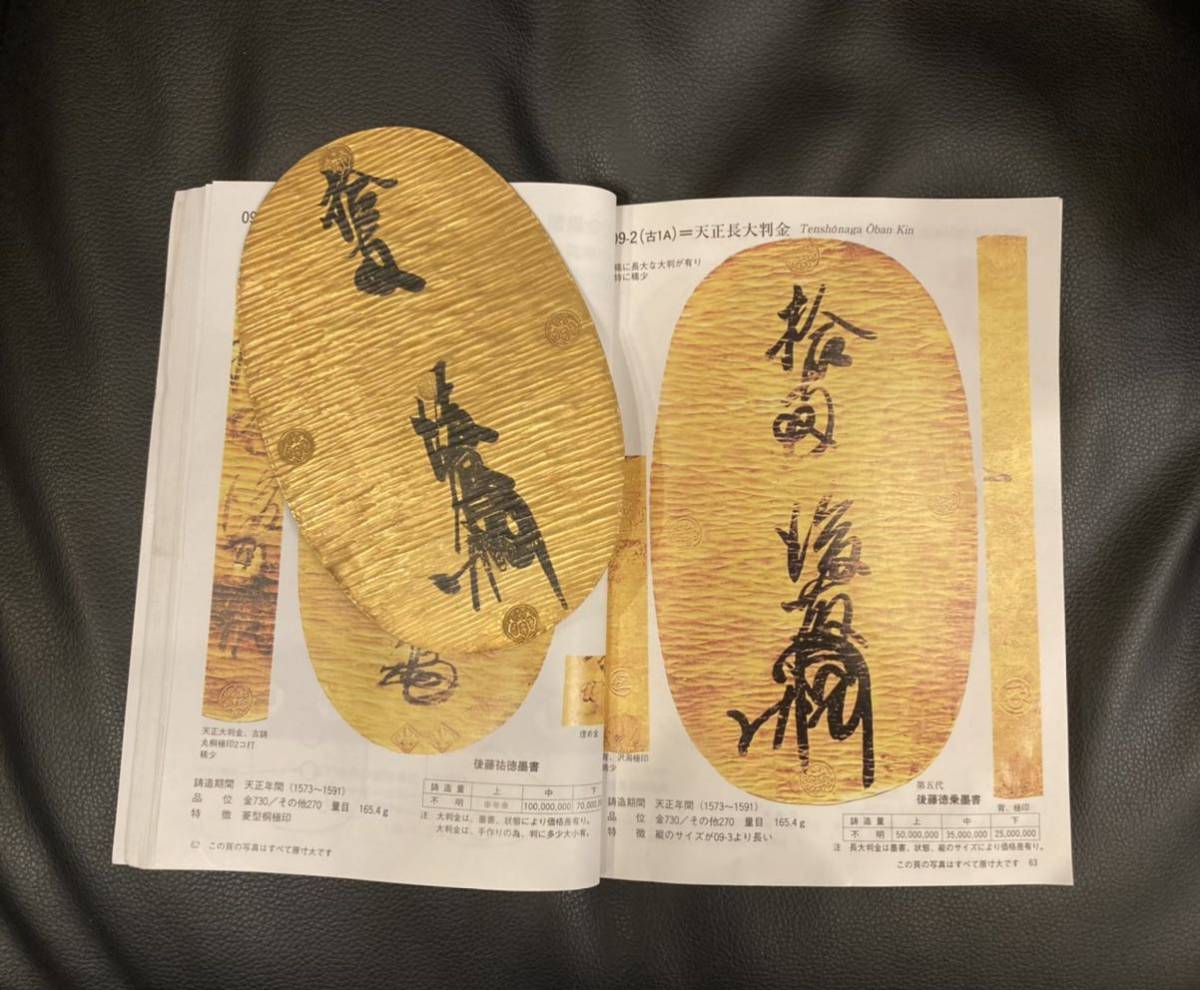 09
拾両
後藤
天正大判金、古鋳
丸桐極印2コ打
稀少
後藤祐徳墨書
鋳造期間 天正年間(1573〜1591)
品 位 金730/その他270 量目 165.4g
特 徴 菱型桐極印
鋳造量 上 中 下
不明 100,000,000 70,000,00
注 大判金は、墨書、状態により価格差有り。
大判金は、手作りの為、判に多少大小有。
62 この頁の写真はすべて原寸大です
09-2(古1A)=天正長大判金 Tenshōnaga Ōban Kin
稀に長大な大判が有り
特に稀少
拾両
後藤
背、沢瀉極印
稀少
第五代
後藤徳乗墨書
背、極印
鋳造期間 天正年間(1573〜1591)
品 位 金730/その他270 量目 165.4g
特 徴 縦のサイズが09-3より長い
鋳造量 上 中 下
不明 50,000,000 35,000,000 25,000,000
注 長大判金は墨書、状態、縦のサイズにより価格差有り。
この頁の写真はすべて原寸大です 63